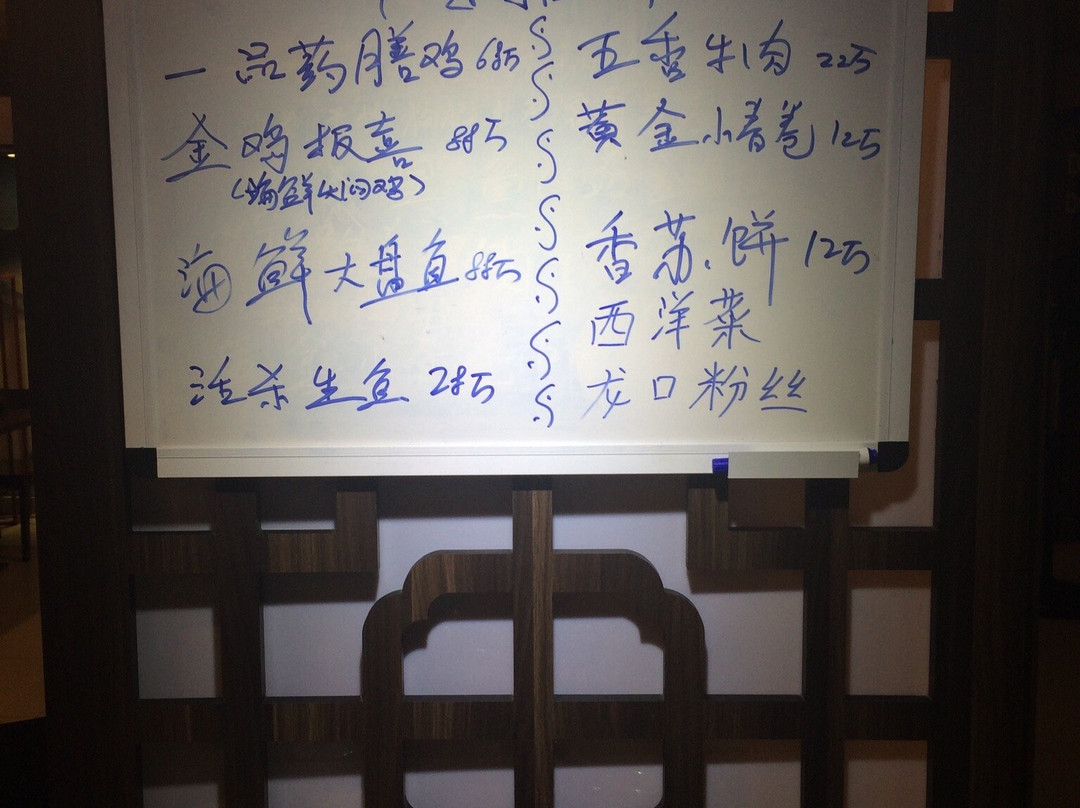 一品药膳鸡 68万
金鸡报喜 88万
(海鲜火闷鸡)
海鲜大盘鱼 88万
活杀生鱼 28万
五香牛肉 22万
黄金小春卷 12万
香苏饼 12万
西洋菜
龙口粉丝